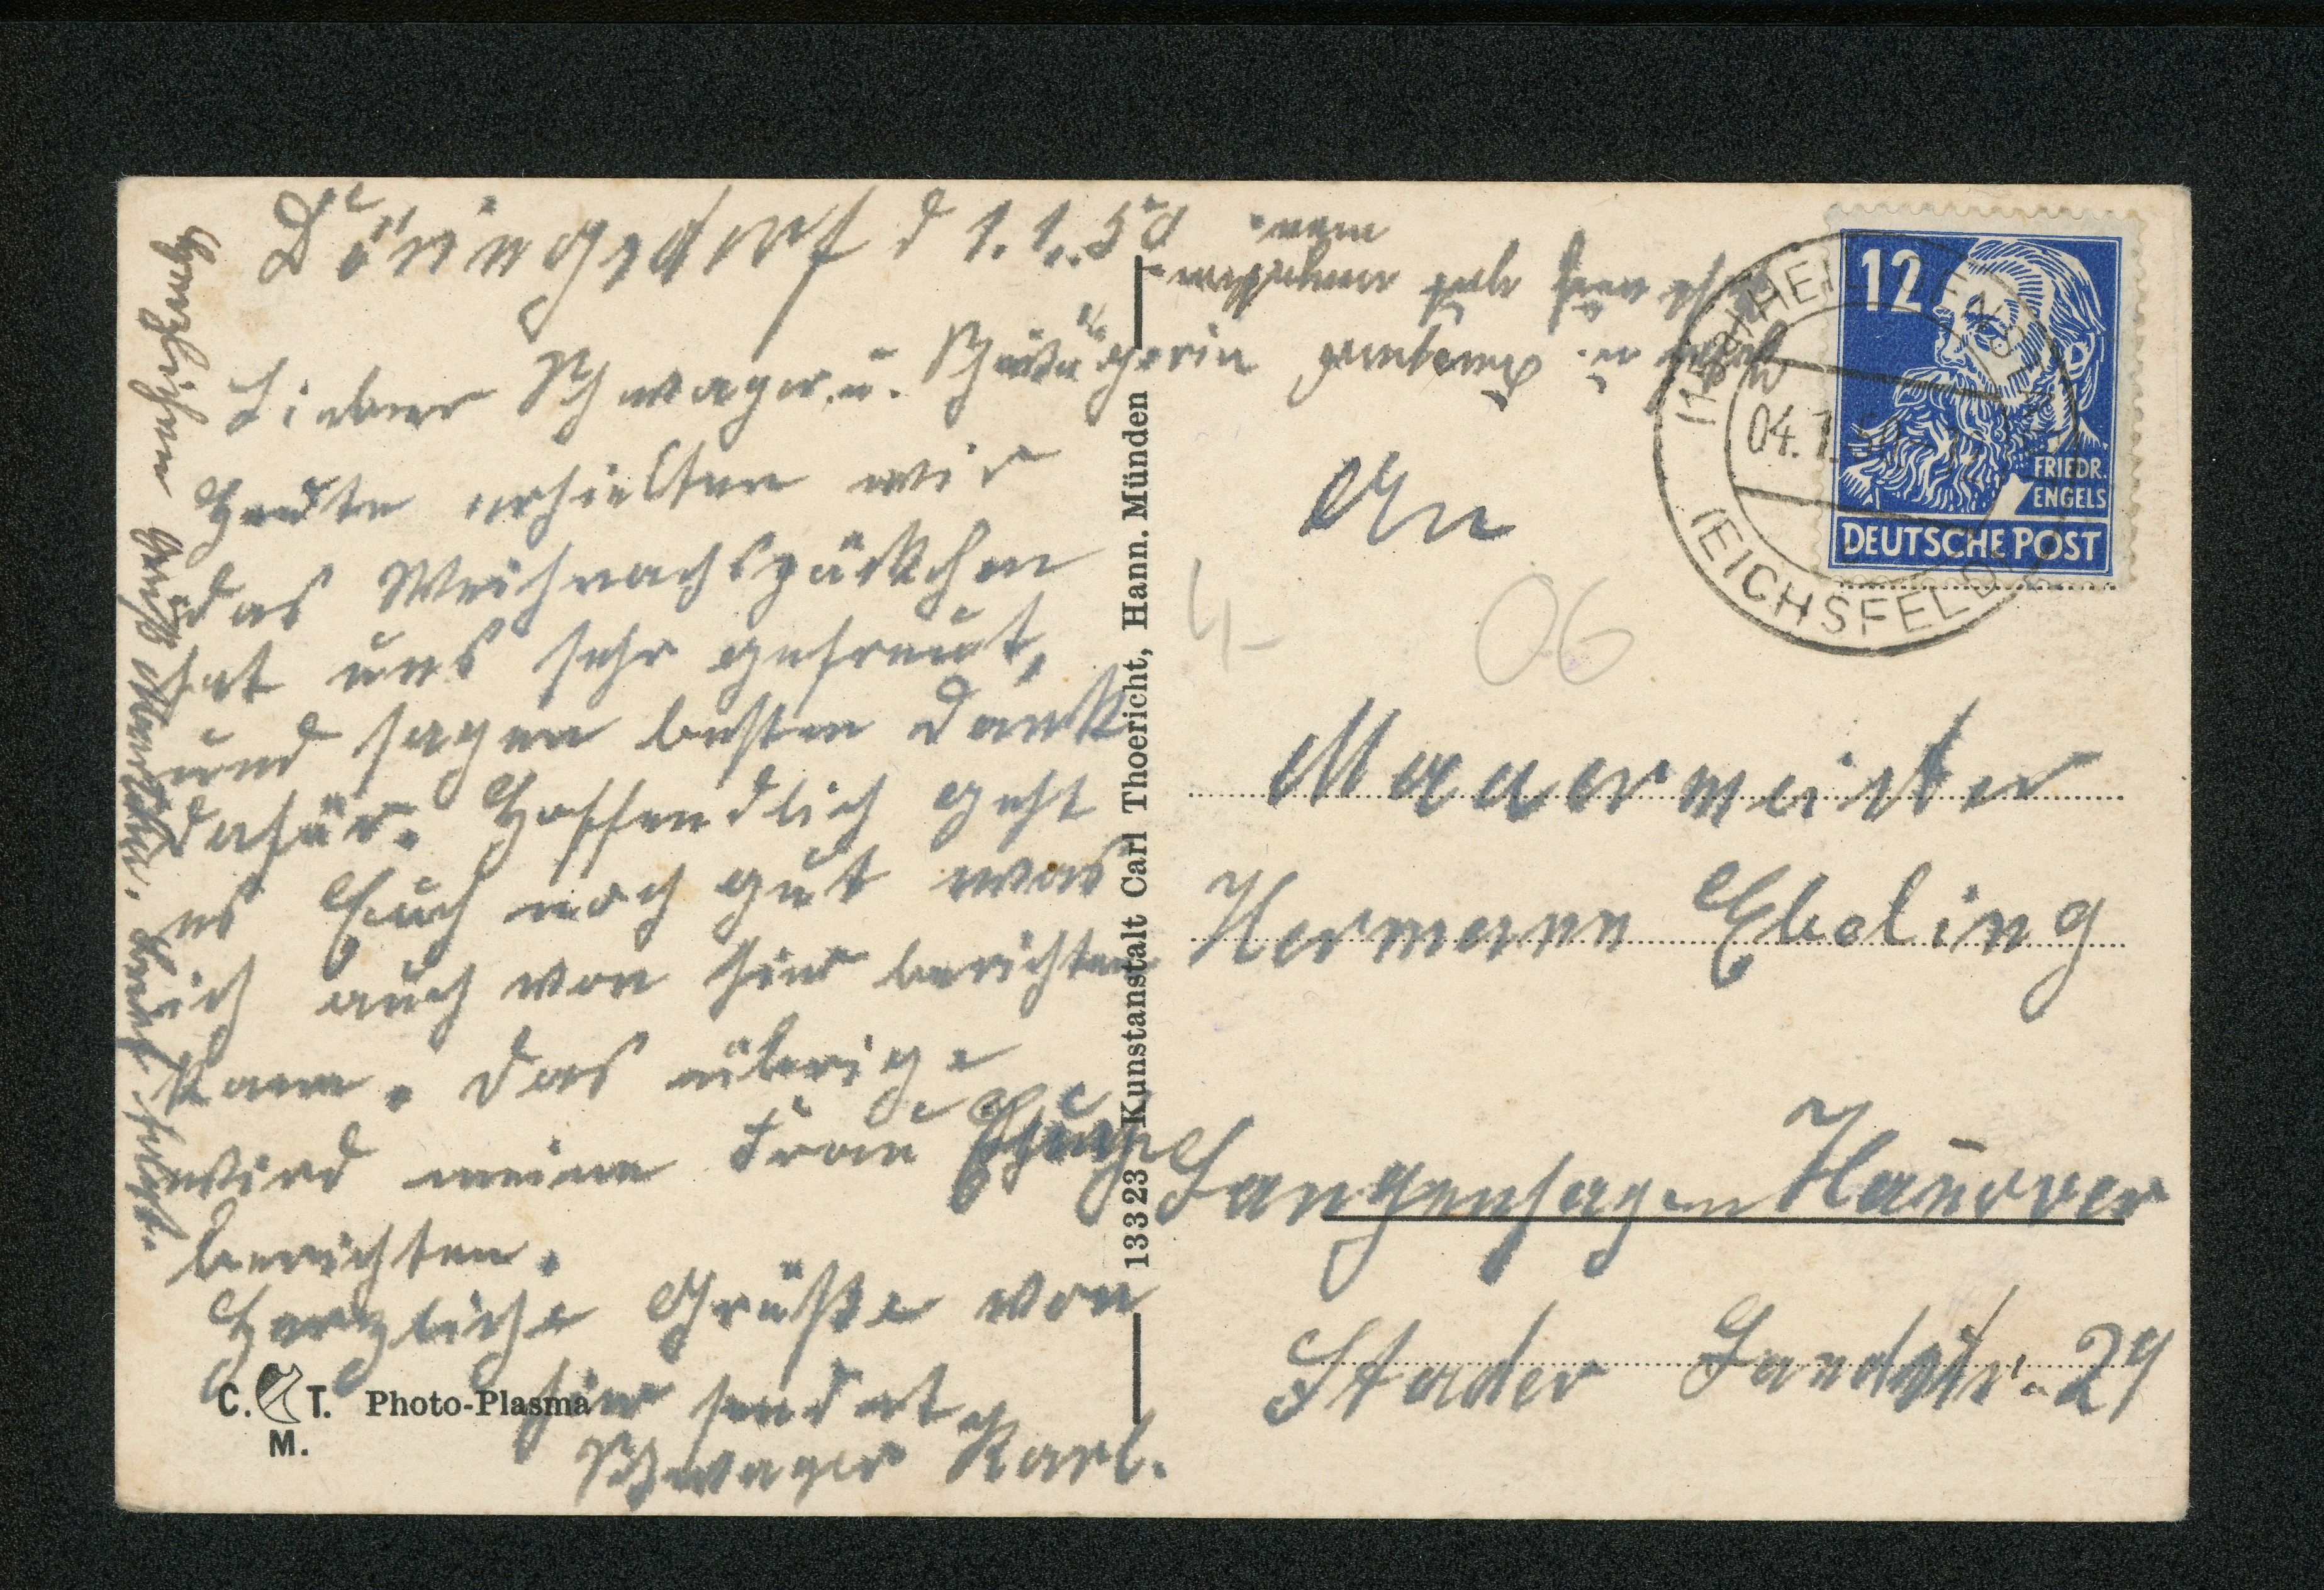 Döringsdorf d 1.1.50
Lieber Schwager u. Schwägerin
Heute erhielten wir
das Weihnachspäckchen
hat uns sehr gefreut,
und sagen besten Dank
dafür. Hoffendlich geht
es Euch noch gut was
ich auch von hier berichten
kann. Das übrige
wird meine Frau
berichten.
Herzliche Grüße von
hier sendet
Schwager Karl.
Herzlichen Gruß
An
Mauermeister
Hermann Ebeling
Langenhagen Hanover
Stader Landstr. 29
4-
06
12
FRIEDR.
ENGELS
DEUTSCHE POST
04.1.50
(EICHSFELD)
13323 Kunstanstalt Carl Thoericht, Hann. Münden
C. T.
M.
Photo-Plasma